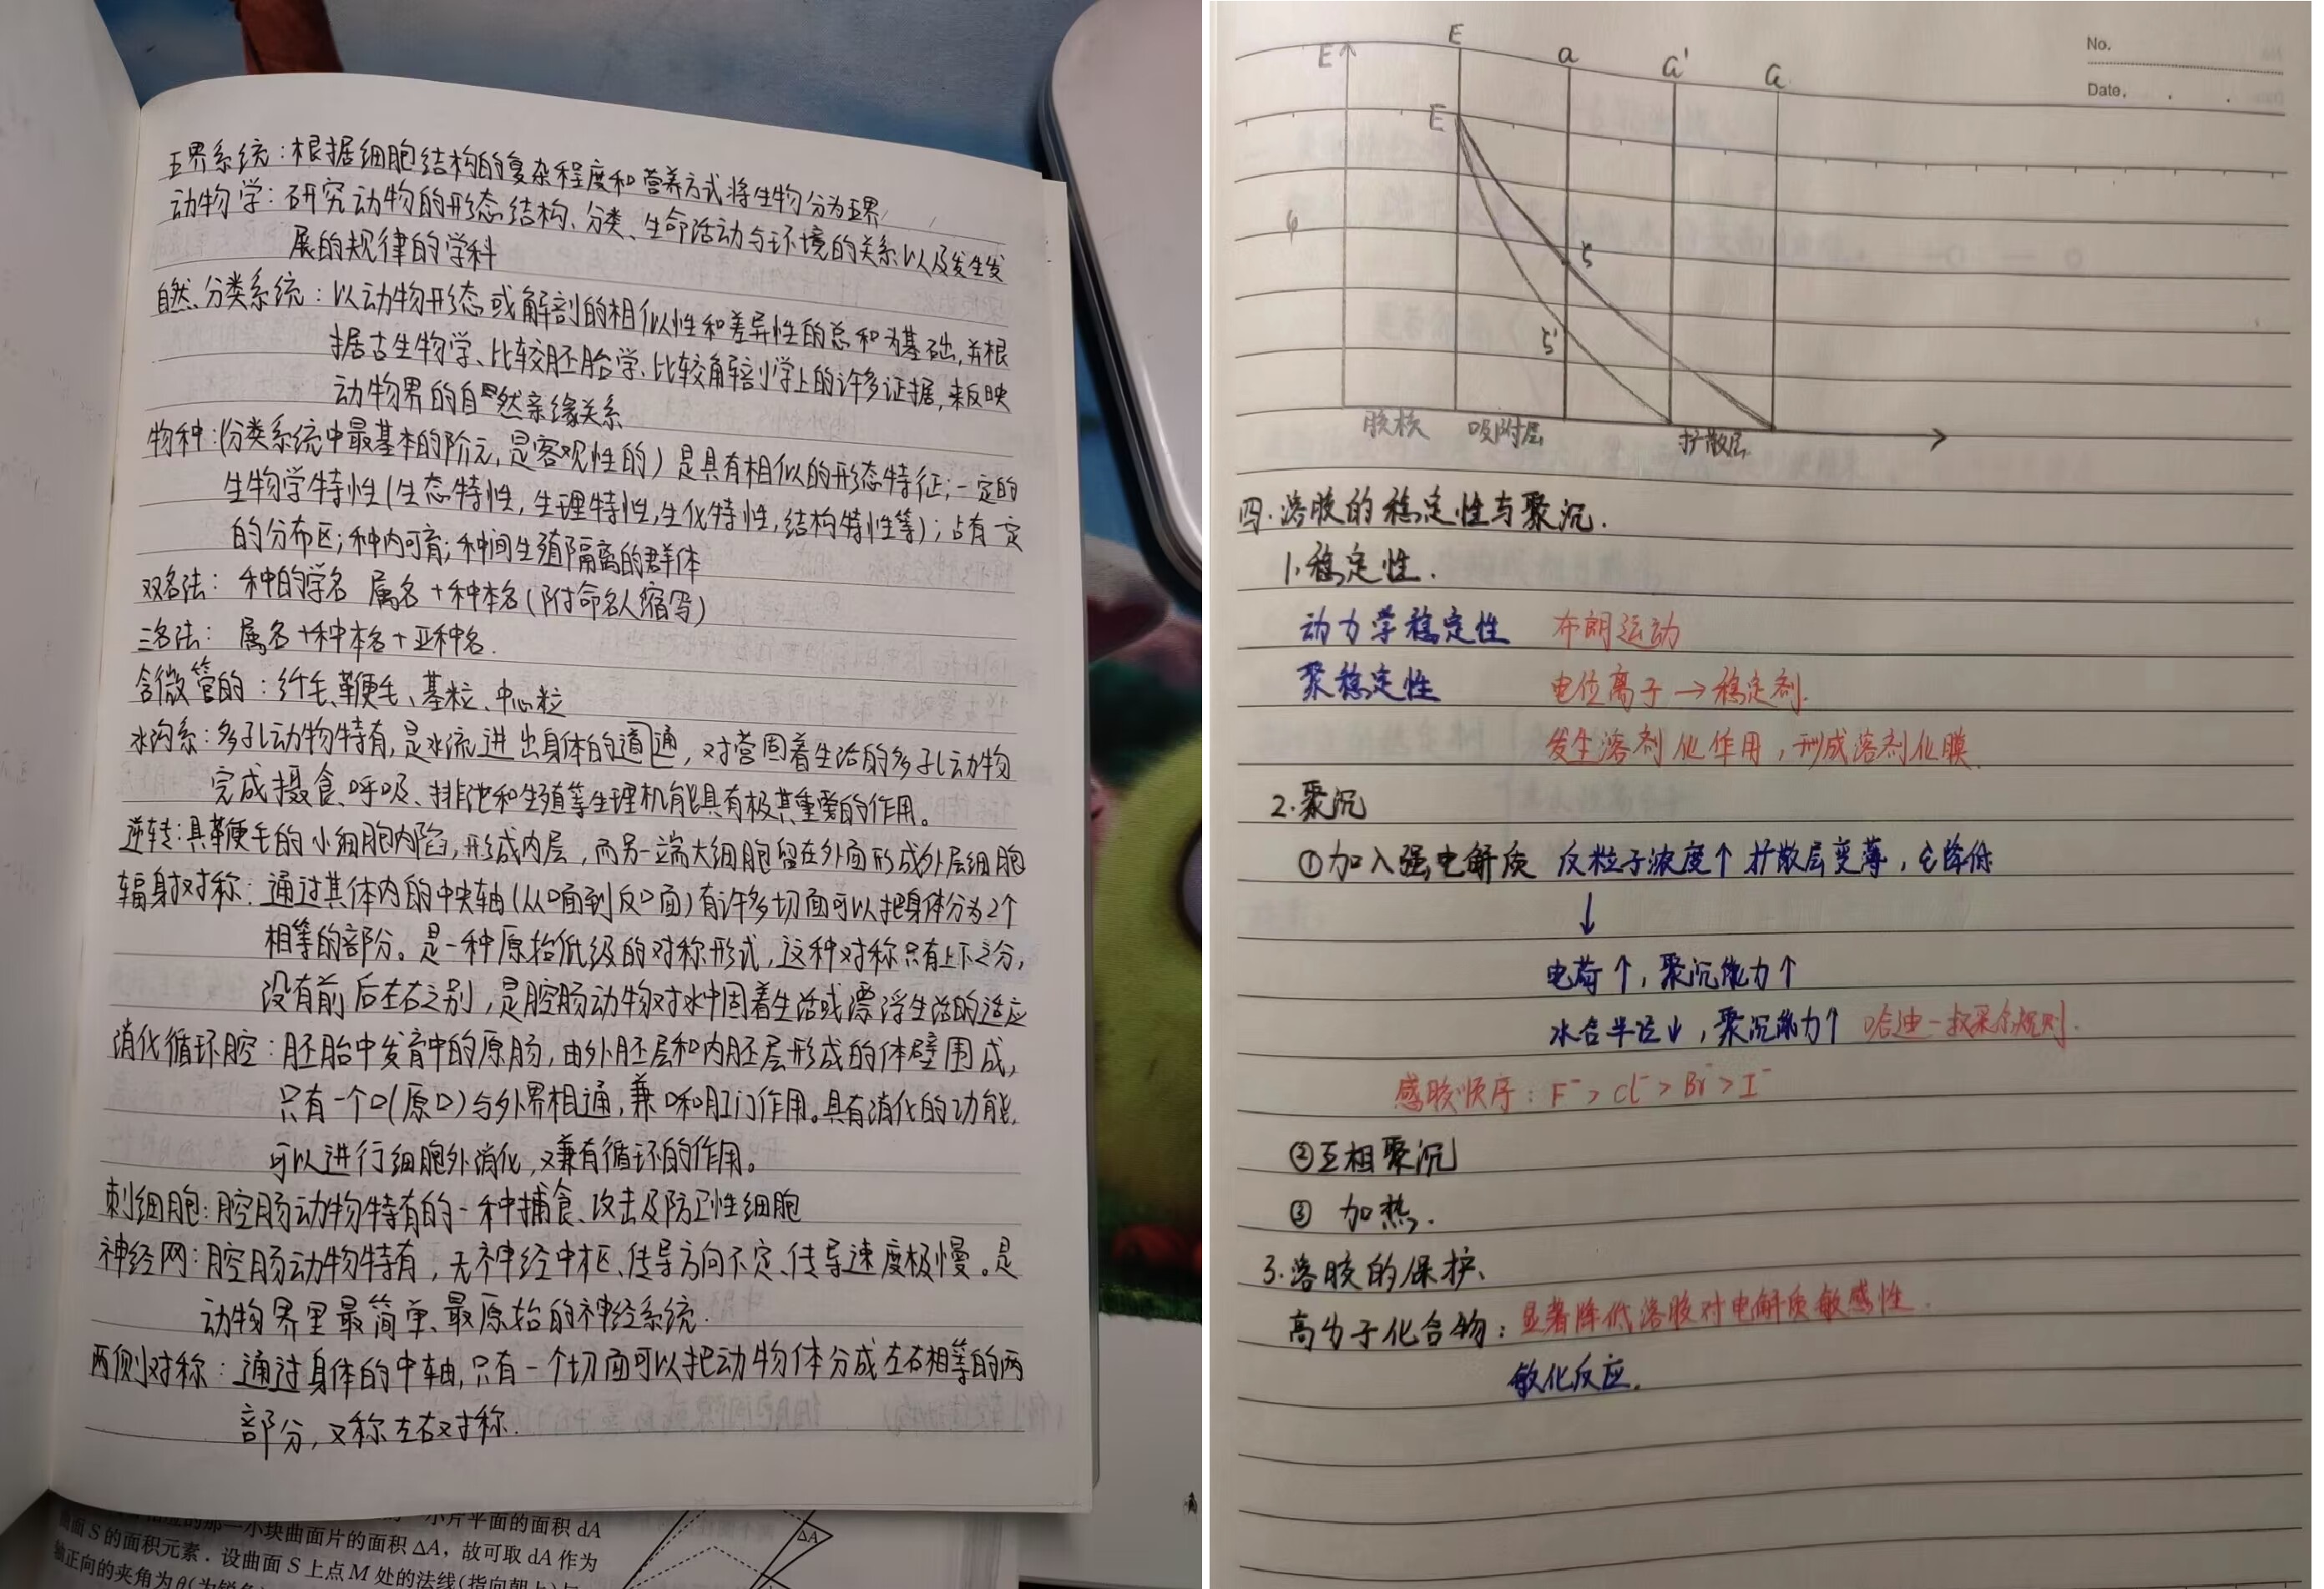 五界系统：根据细胞结构的复杂程度和营养方式将生物分为五界
动物学：研究动物的形态结构、分类、生命活动与环境的关系以及发生发
展的规律的学科
自然分类系统：以动物形态或解剖的相似性和差异性的总和为基础，并根
据古生物学、比较胚胎学、比较解剖学上的许多证据，来反映
动物界的自然亲缘关系
物种：（分类系统中最基本的阶元，是客观性的）是具有相似的形态特征；一定的
生物学特性（生态特性，生理特性，生化特性，结构特性等）；占有一定
的分布区；种内可育；种间生殖隔离的群体
双名法：种的学名 属名+种本名（附命名人缩写）
三名法：属名+种本名+亚种名.
含微管的：纤毛、鞭毛、基粒、中心粒
水沟系：多孔动物特有，是水流进出身体的通，对营固着生活的多孔动物
完成摄食、呼吸、排泄和生殖等生理机能具有极其重要的作用。
逆转：具鞭毛的小细胞内陷，形成内层，而另一端大细胞留在外面形成外层细胞
辐射对称：通过其体内的中央轴（从口面到反口面）有许多切面可以把身体分为2个
相等的部分。是一种原始低级的对称形式，这种对称只有上下之分，
没有前后左右之别，是腔肠动物对水中固着生活或漂浮生活的适应
消化循环腔：胚胎中发育中的原肠，由外胚层和内胚层形成的体壁围成，
只有一个口（原口）与外界相通，兼口和肛门作用。具有消化的功能，
可以进行细胞外消化，又兼有循环的作用。
刺细胞：腔肠动物特有的一种捕食、攻击及防卫性细胞
神经网：腔肠动物特有，无神经中枢、传导方向不定、传导速度极慢。是
动物界里最简单、最原始的神经系统.
两侧对称：通过身体的中轴，只有一个切面可以把动物体分成左右相等的两
部分，又称左右对称.
那一小块曲面片的面积 ΔA，故可取 dA 作为
小片平面的面积 dA
曲面 S 的面积元素．设曲面 S 上点 M 处的法线（指向朝上）与
轴正向的夹角为 θ
ΔA
No.
Date.
E
E a a' a
E
φ
ζ
ζ'
胶核 吸附层 扩散层
四.溶胶的稳定性与聚沉.
1.稳定性.
动力学稳定性 布朗运动
聚稳定性 电位离子→稳定剂.
发生溶剂化作用，形成溶剂化膜.
2.聚沉
①加入强电解质 反粒子浓度↑ 扩散层变薄，ζ降低
↓
电荷↑，聚沉能力↑
水合半径↓，聚沉能力↑ 哈迪-叔采尔规则.
感胶顺序：F⁻>Cl⁻>Br⁻>I⁻
②互相聚沉
③ 加热.
3.溶胶的保护、
高分子化合物：显著降低溶胶对电解质敏感性.
敏化反应.